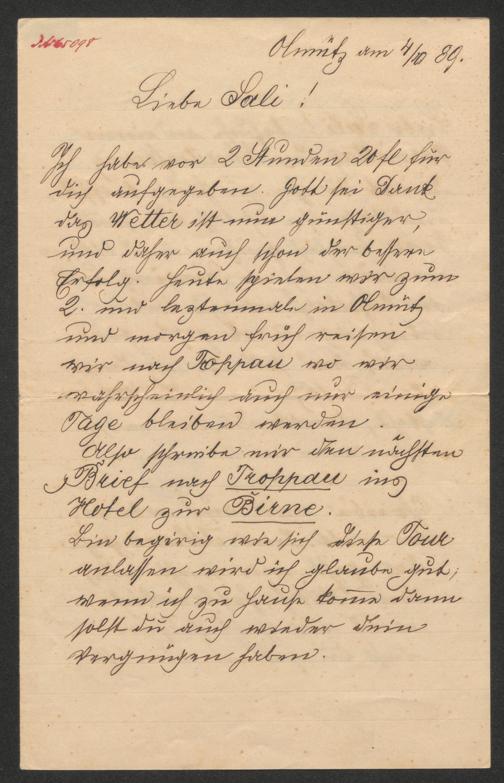 Olmütz am 4/10 89.
Liebe Sali!
Ich habe vor 2 Stunden 20 fl für
dich aufgegeben. Gott sei Dank
das Wetter ist nun günstiger,
und daher auch schon der bessere
Erfolg. Heute spielen wir zum
2. und leztenmale in Olmütz
und morgen früh reisen
wir nach Troppau wo wir
wahrscheinlich auch nur einige
Tage bleiben werden.
Also schreibe mir den nächsten
Brief nach Troppau ins
Hotel zur Birne.
Bin begirig wie sich diese Tour
anlassen wird ich glaube gut;
wenn ich zu Hause kom̅e dann
solst du auch wieder dein
Vergnügen haben.